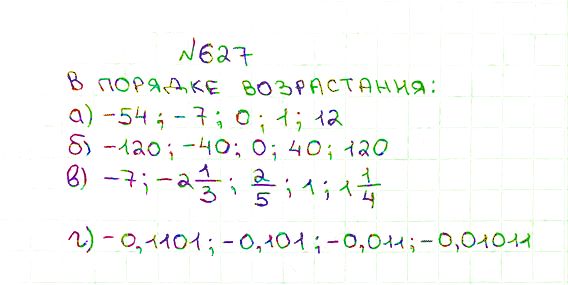 №627
В ПОРЯДКЕ ВОЗРАСТАНИЯ:
а) -54; -7; 0; 1; 12
б) -120; -40; 0; 40; 120
в) -7; -2 1/3; 2/5; 1; 1 1/4
г) -0,1101; -0,101; -0,011; -0,01011